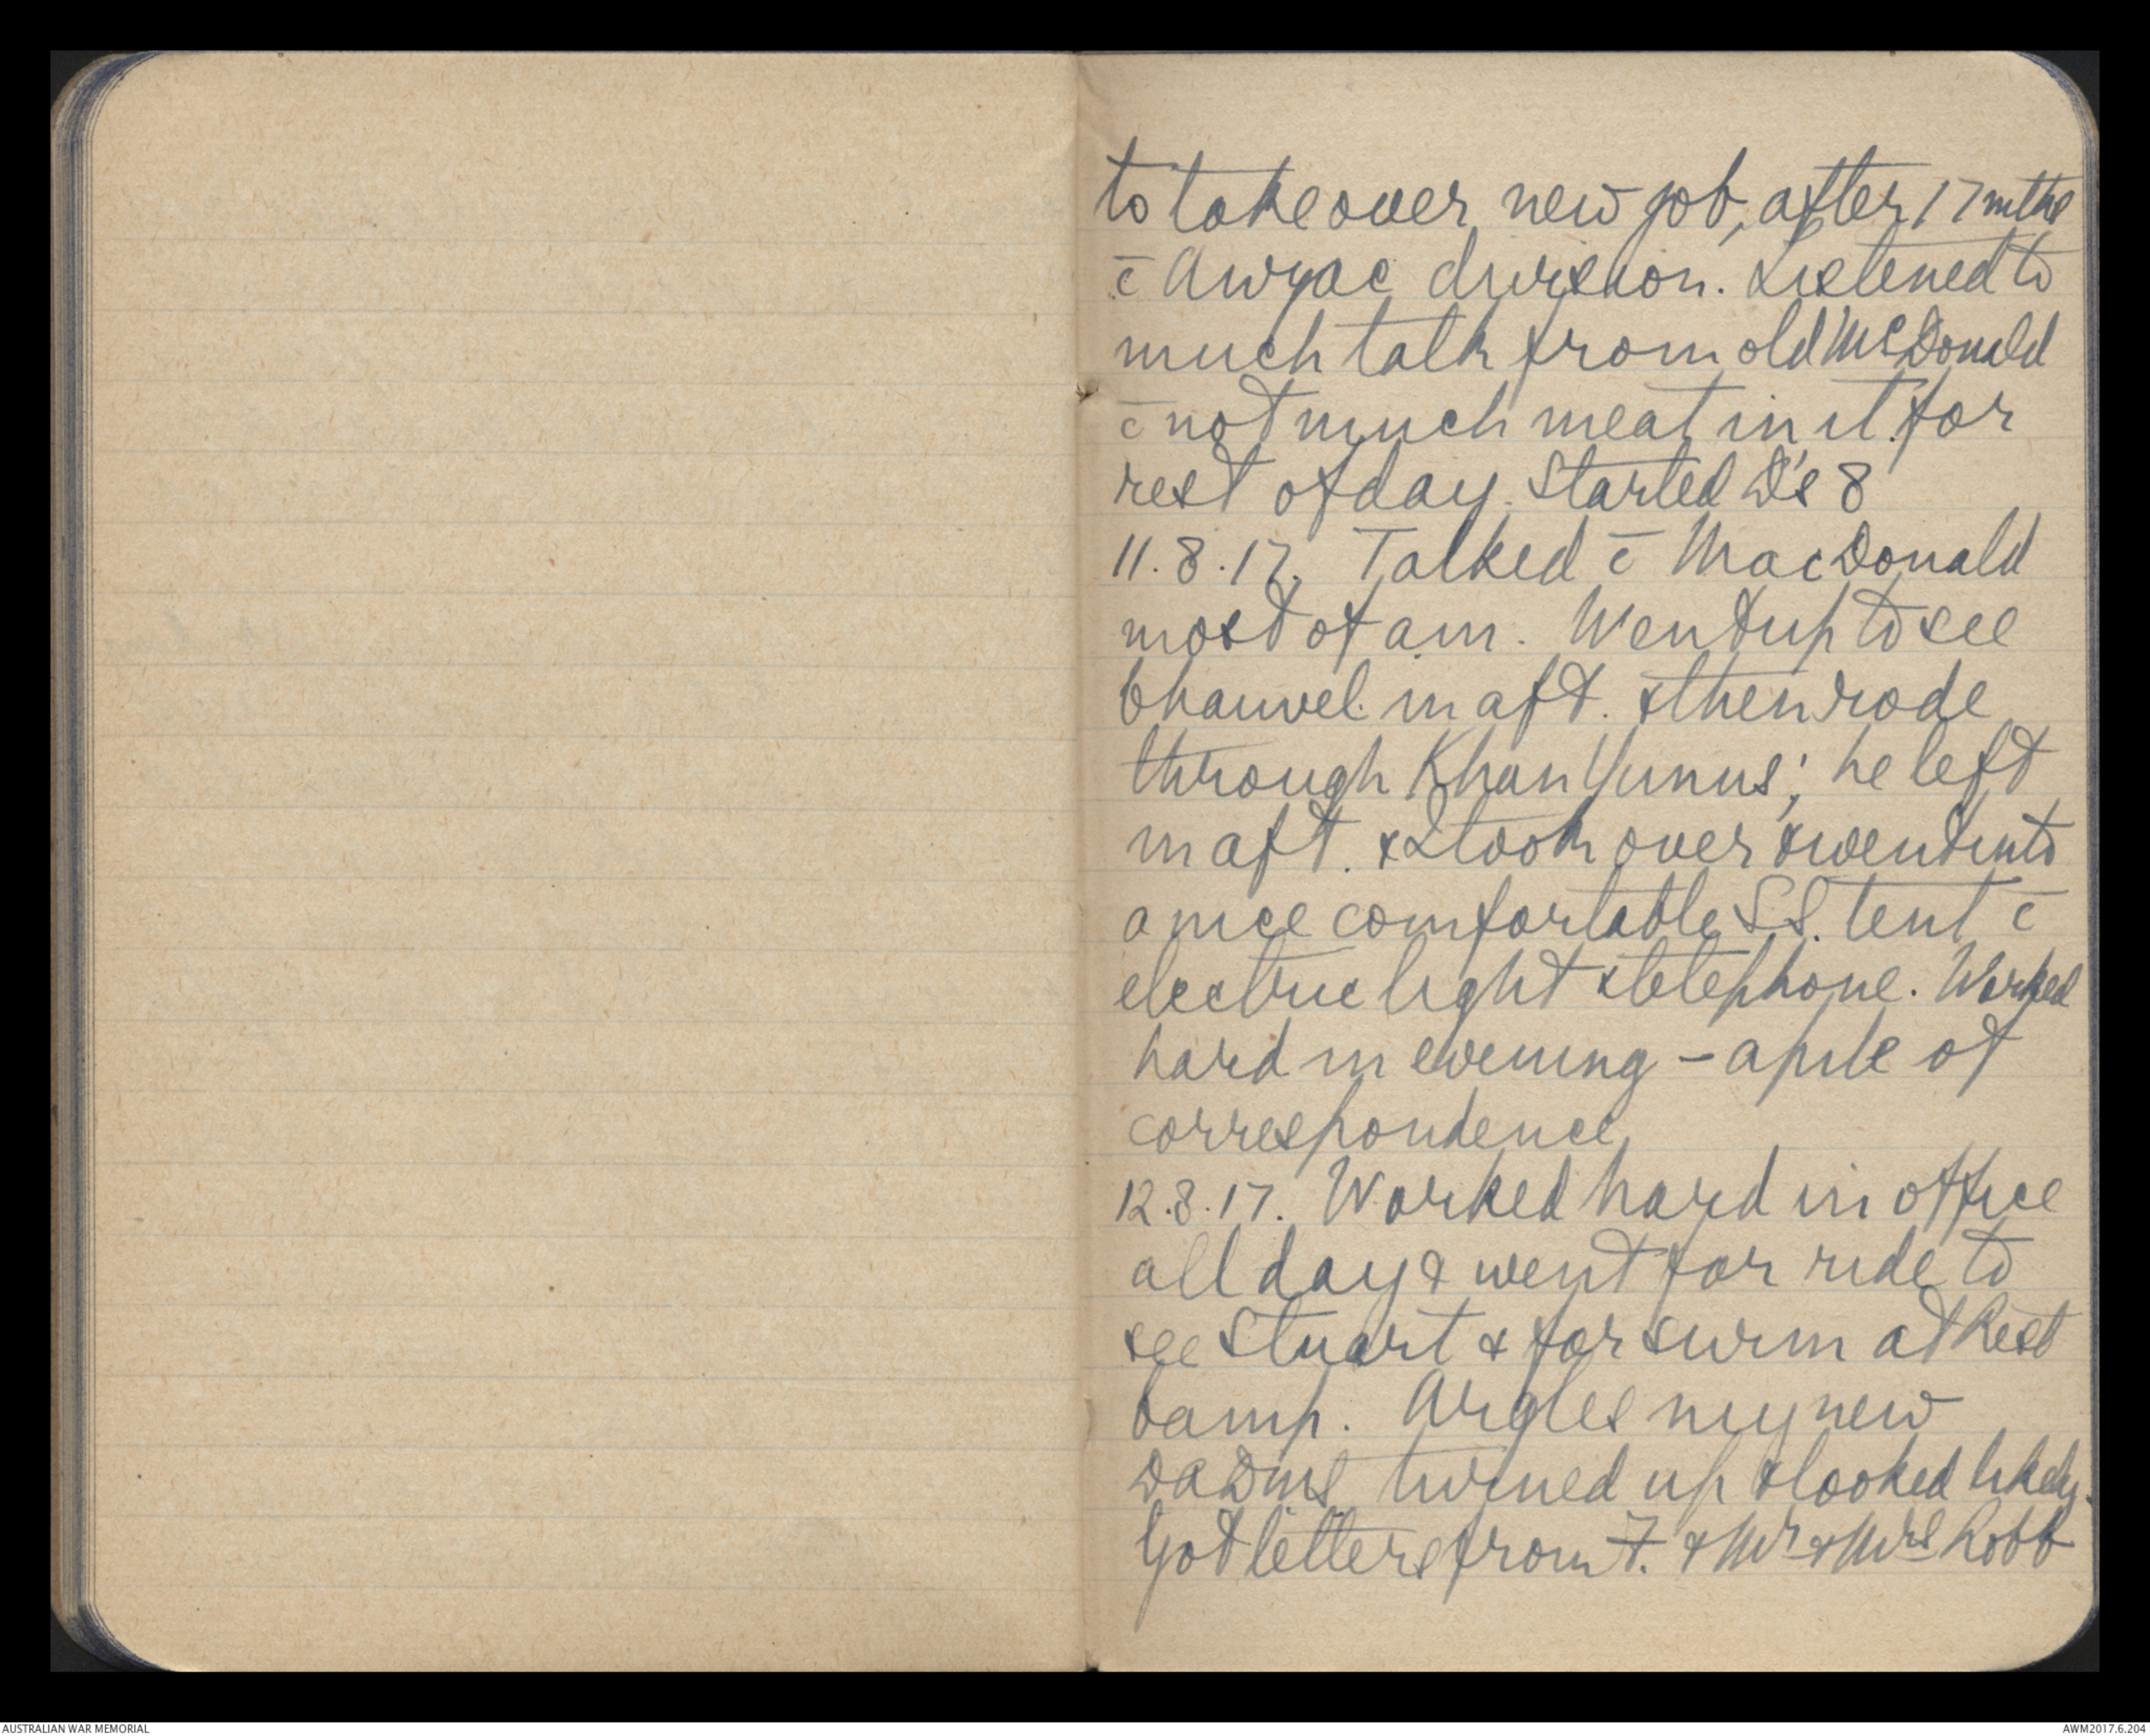 to take over new job, after 17 mths
c̄ Anzac division. Listened to
much talk from old McDonald
c̄ not much meat in it for
rest of day. Started D's 8
11.8.17. Talked c̄ MacDonald
most of am. Went up to see
Chauvel in aft. & then rode
through Khan Yunus; he left
in aft. & I took over & went into
a nice comfortable S.S. tent c̄
electric light & telephone. Worked
hard in evening - a pile of
correspondence
12.8.17. Worked hard in office
all day & went for ride to
see Stuart & for swim at Rest
Camp. Argles my new
DADMS turned up & looked likely.
Got letters from F. & Mr & Mrs Robb
AUSTRALIAN WAR MEMORIAL
AWM2017.6.204